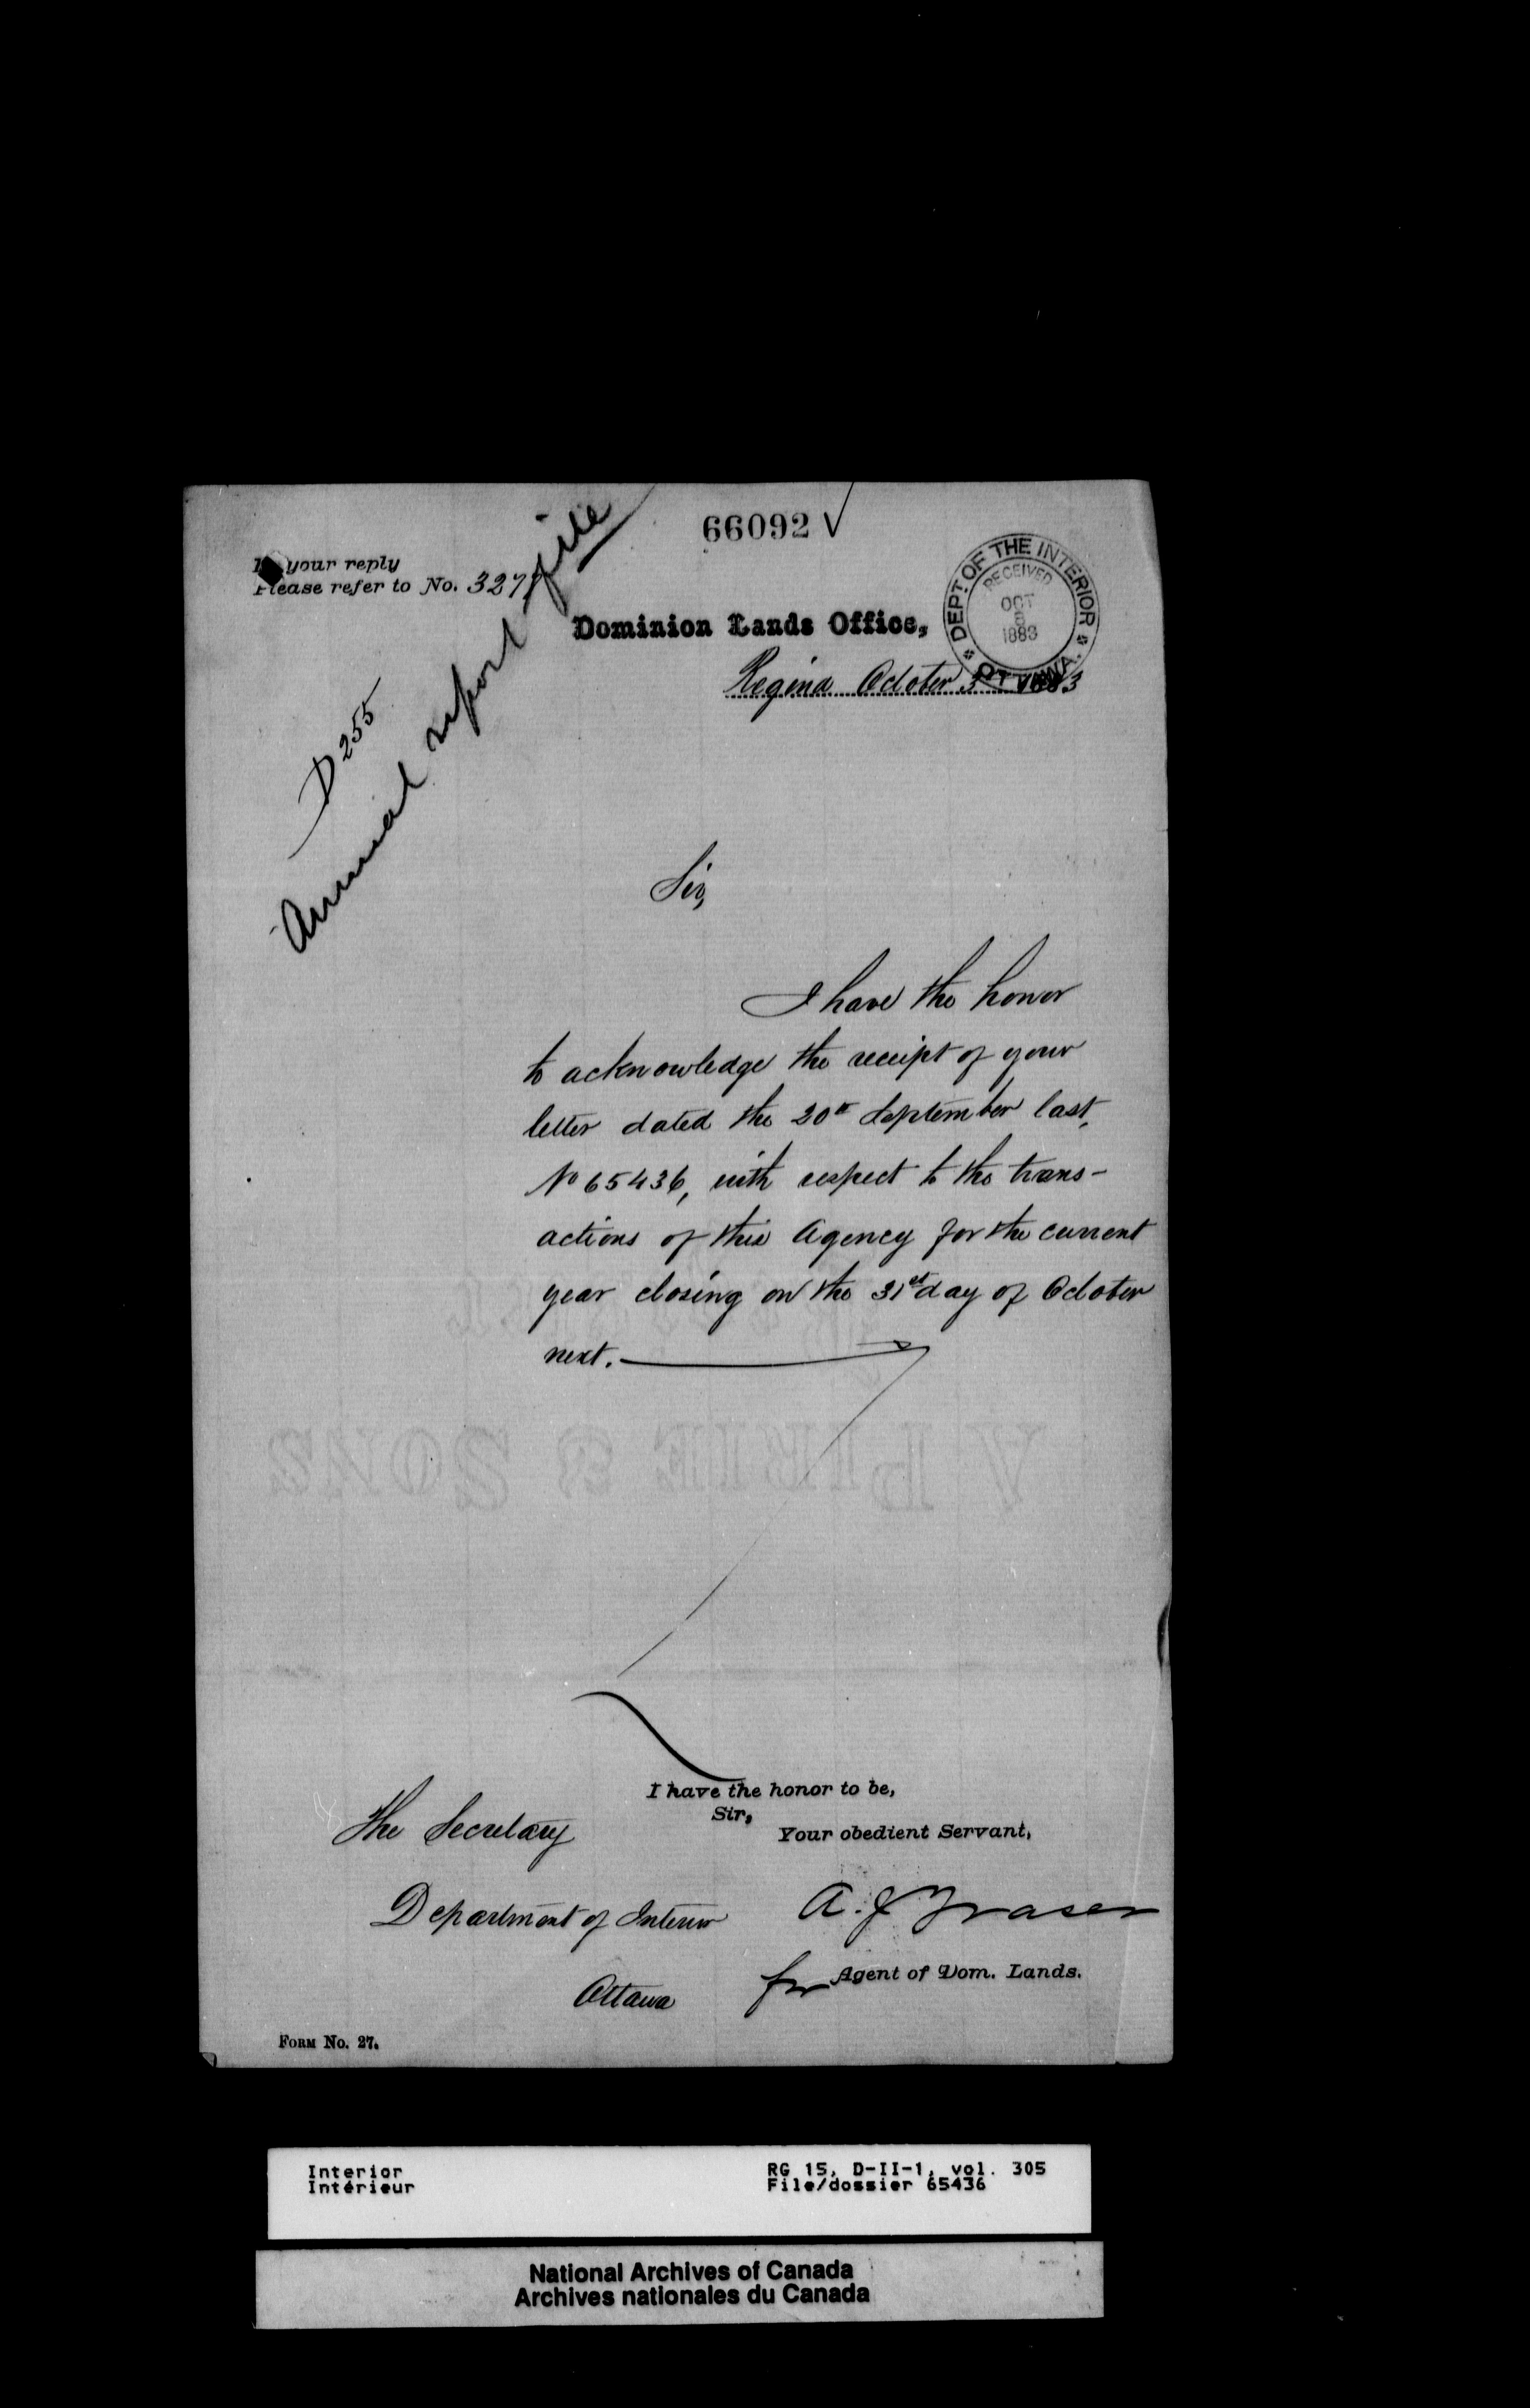 66092 √
In your reply
Please refer to No. 327
D 255
Annual report file
DEPT. OF THE INTERIOR
RECEIVED
OCT
1883
OTTAWA.
Dominion Lands Office,
Regina October 3 1883
Sir,
I have the honor
to acknowledge the receipt of your
letter dated the 20th September last,
No 65436, with respect to the trans-
actions of this Agency for the current
year closing on the 31st day of October
next.
A PIRIE & SONS
I have the honor to be,
Sir,
Your obedient Servant,
The Secretary
Department of Interior
Ottawa
A. J. Fraser
for Agent of Dom. Lands.
FORM No. 27.
Interior
Intérieur
RG 15, D-II-1, vol. 305
File/dossier 65436
National Archives of Canada
Archives nationales du Canada